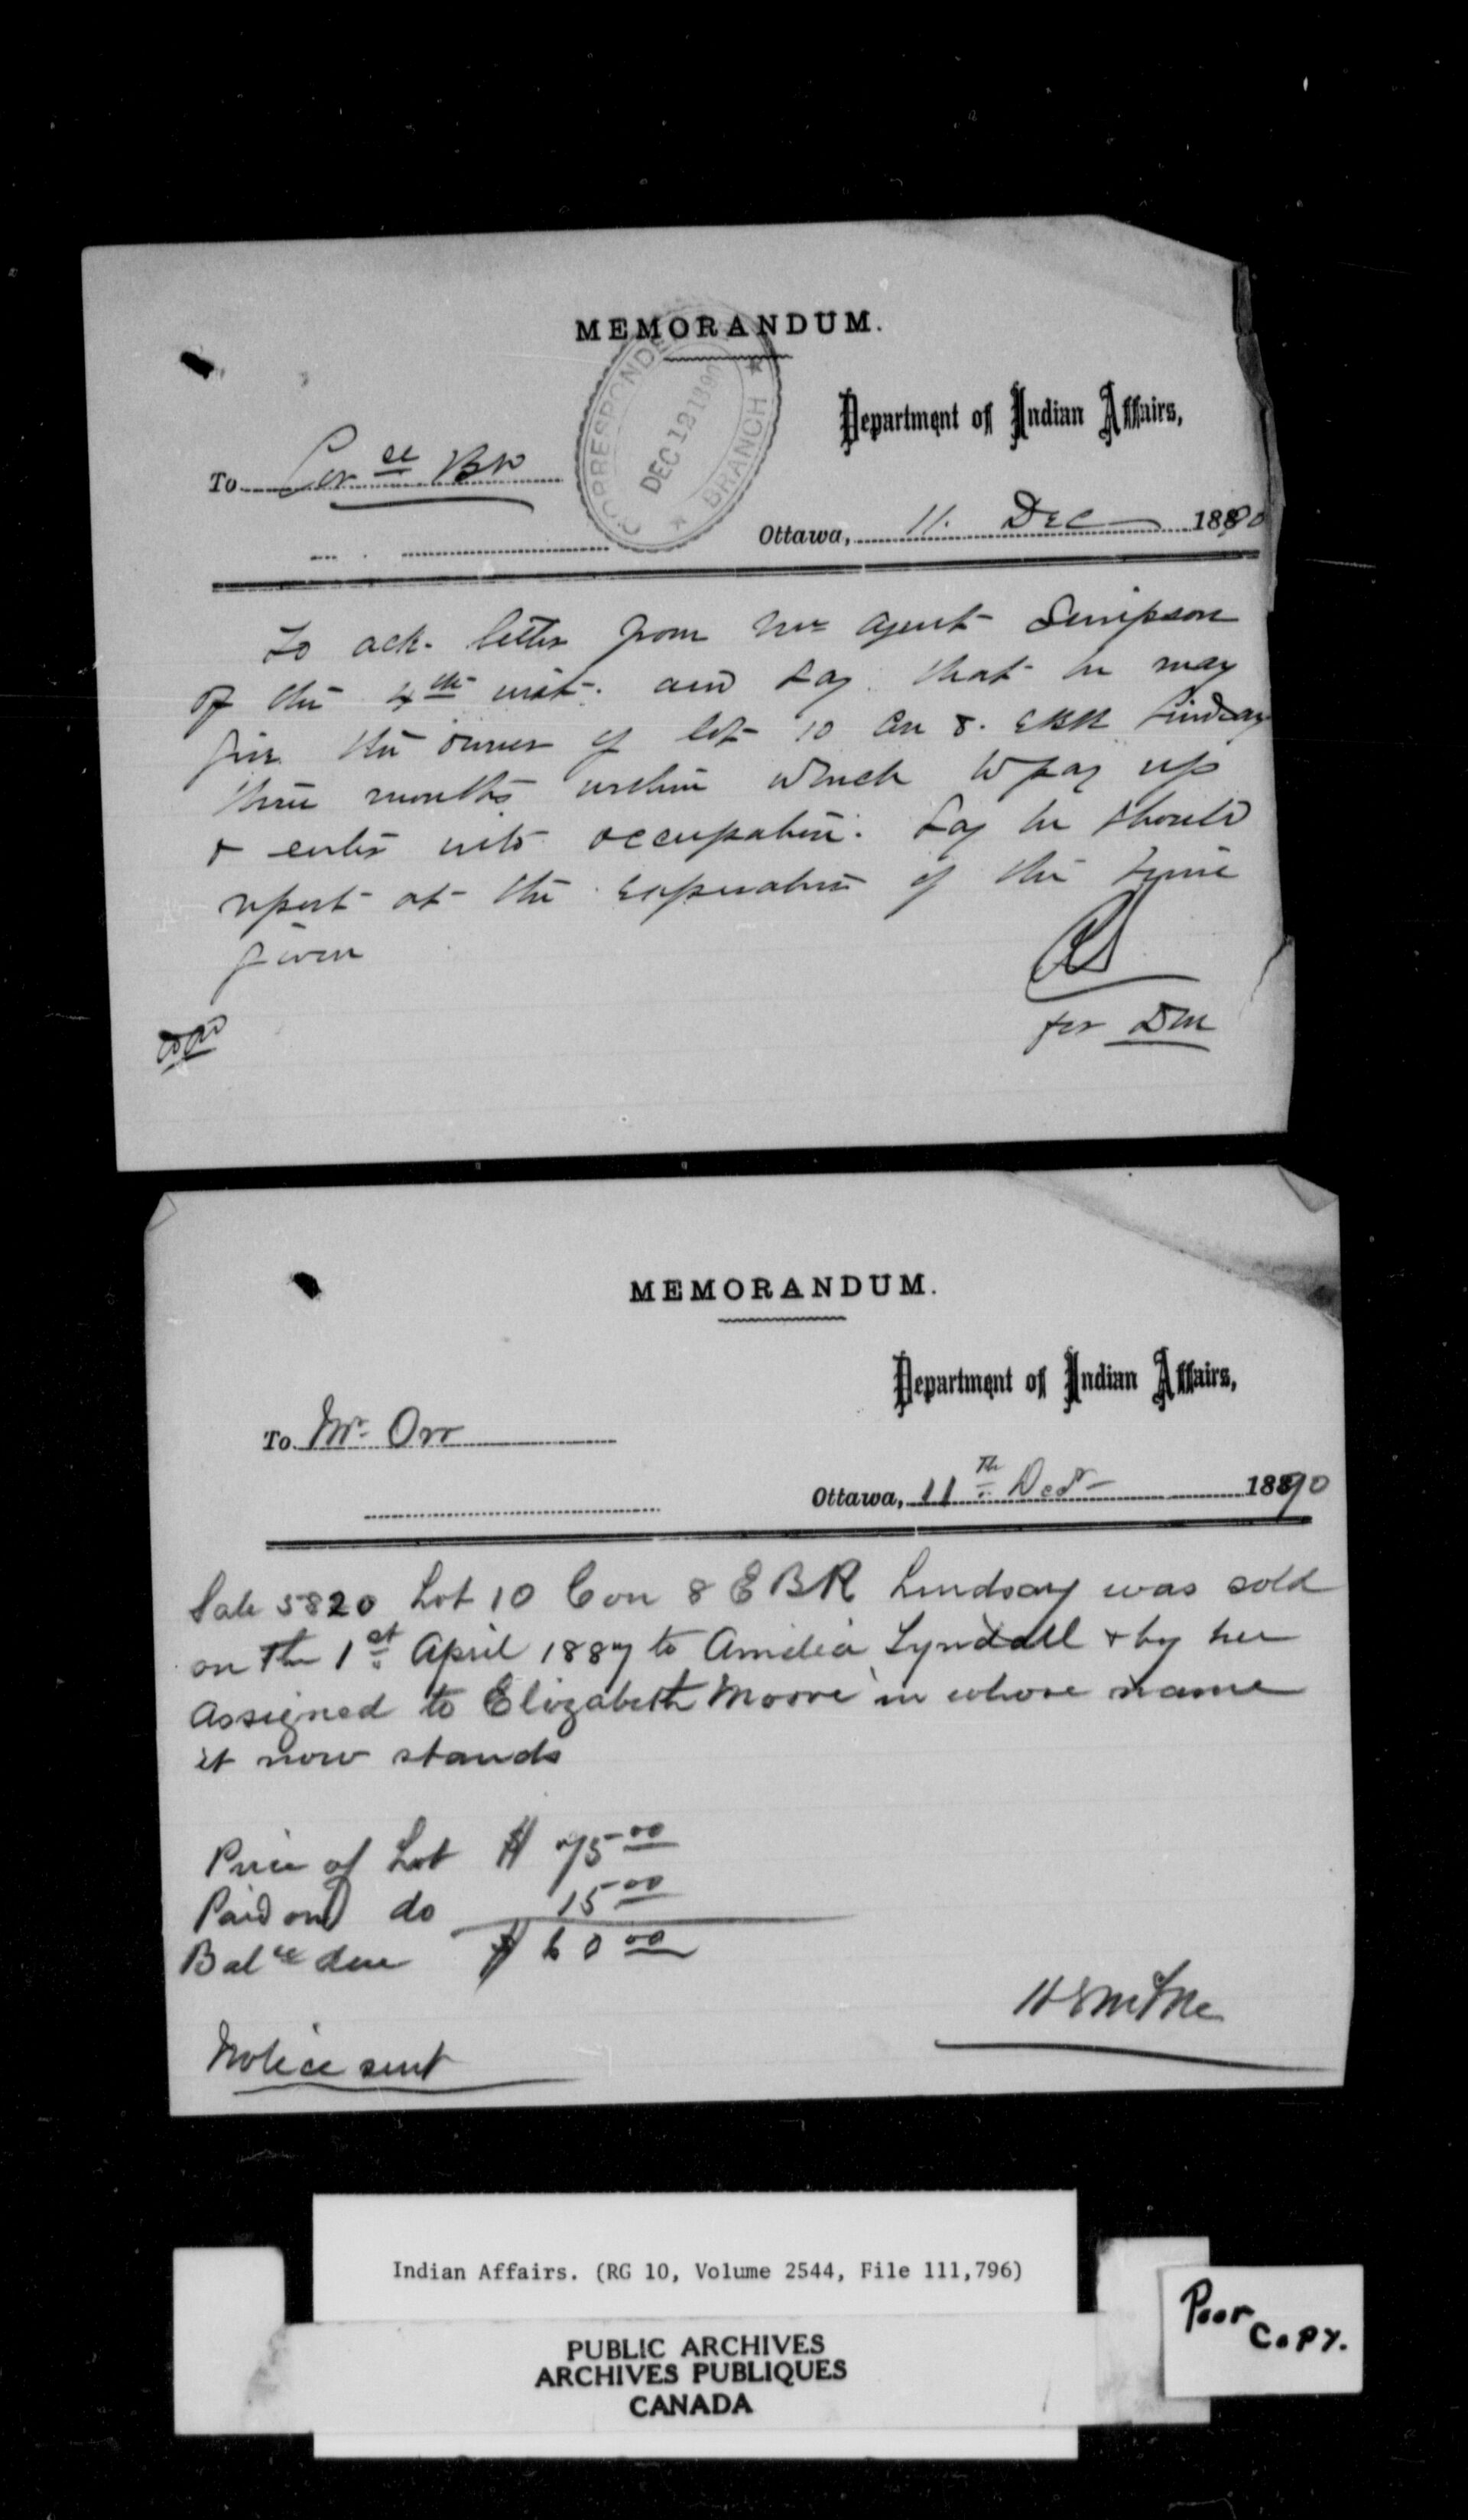 MEMORANDUM.
CORRESPONDENCE BRANCH
DEC 12 1890
Department of Indian Affairs,
To Corce Bh
Ottawa, 11. Dec 1890
To ack. letter from Mr Agent Simpson
of the 4th inst. and say that he may
give the owner of lot 10 Con 8. EBR Lindsay
three months within which to pay up
& enter into occupation. Say he should
report at the expiration of the time
given
for DM
MEMORANDUM.
Department of Indian Affairs,
To Mr. Orr
Ottawa, 11th Decr 1890
Sale 5820 Lot 10 Con 8 EBR Lindsay was sold
on the 1st April 1887 to Amelia Lyndall & by her
assigned to Elizabeth Moore in whose name
it now stands
Price of Lot $ 75 00
Paid on do 15 00
Balce due $ 60 00
Notice sent
Indian Affairs. (RG 10, Volume 2544, File 111,796)
PUBLIC ARCHIVES
ARCHIVES PUBLIQUES
CANADA
Poor
Copy.